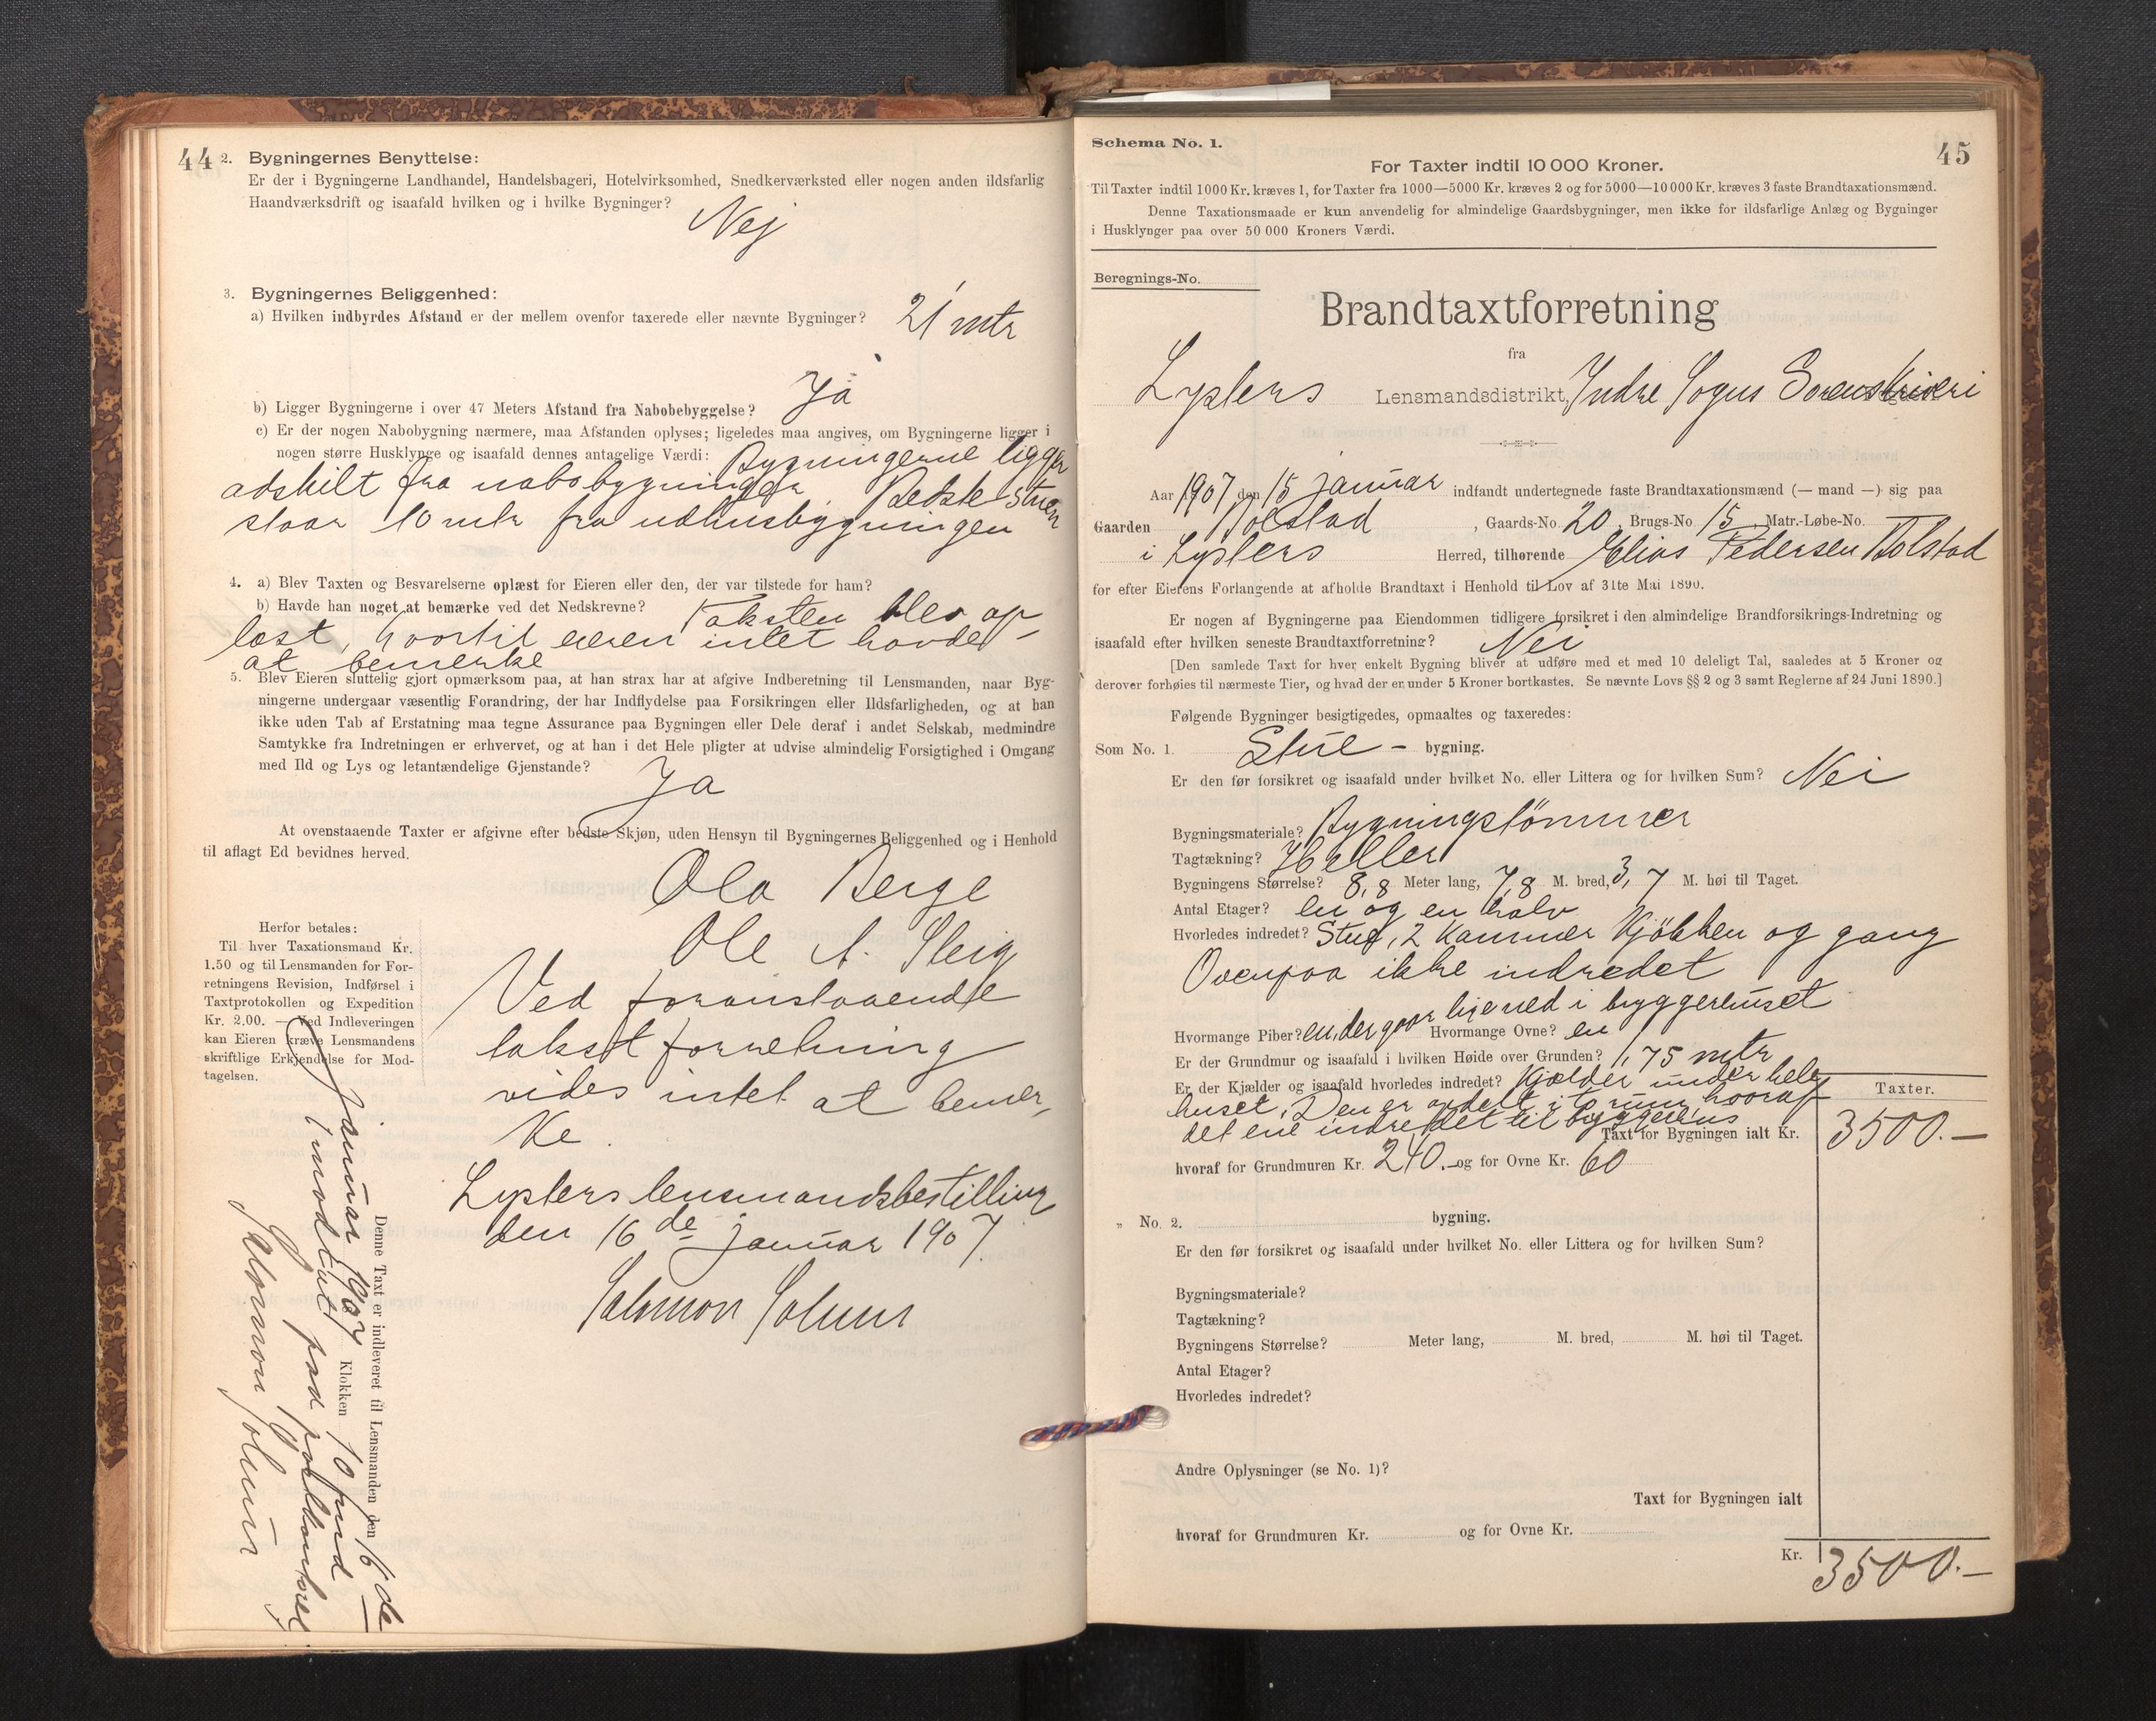 44
2. Bygningernes Benyttelse:
Er der i Bygningerne Landhandel, Handelsbageri, Hotelvirksomhed, Snedkerværksted eller nogen anden ildsfarlig
Haandværksdrift og isaafald hvilken og i hvilke Bygninger?
Nej
3. Bygningernes Beliggenhed:
a) Hvilken indbyrdes Afstand er der mellem ovenfor taxerede eller nævnte Bygninger? 21 mtr
b) Ligger Bygningerne i over 47 Meters Afstand fra Nabobebyggelse? Ja
c) Er der nogen Nabobygning nærmere, maa Afstanden oplyses; ligeledes maa angives, om Bygningerne ligger i
nogen større Husklynge og isaafald dennes antagelige Værdi: Bygningerne ligger
adskilt fra nabobygninger. Bedste Stuen
staar 10 mtr fra udhusbygningen
4. a) Blev Taxten og Besvarelserne oplæst for Eieren eller den, der var tilstede for ham?
b) Havde han noget at bemærke ved det Nedskrevne? Taksten blev op-
læst, hvortil eieren intet havde
at bemerke
5. Blev Eieren sluttelig gjort opmærksom paa, at han strax har at afgive Indberetning til Lensmanden, naar Byg-
ningerne undergaar væsentlig Forandring, der har Indflydelse paa Forsikringen eller Ildsfarligheden, og at han
ikke uden Tab af Erstatning maa tegne Assurance paa Bygningen eller Dele deraf i andet Selskab, medmindre
Samtykke fra Indretningen er erhvervet, og at han i det Hele pligter at udvise almindelig Forsigtighed i Omgang
med Ild og Lys og letantændelige Gjenstande?
Ja
At ovenstaaende Taxter er afgivne efter bedste Skjøn, uden Hensyn til Bygningernes Beliggenhed og i Henhold
til aflagt Ed bevidnes herved.
Ola Berge
Ole A. Sleig
Herfor betales:
Til hver Taxationsmand Kr.
1.50 og til Lensmanden for For-
retningens Revision, Indførsel i
Taxtprotokollen og Expedition
Kr. 2.00. — Ved Indleveringen
kan Eieren kræve Lensmandens
skriftlige Erkjendelse for Mod-
tagelsen.
Ved foranstaaende
takst forretning
vides intet at bemer-
ke.
Lysters lensmandsbestilling
den 16de januar 1907.
Salomon Solum
Denne Taxt er indleveret til Lensmanden den 16de
januar 1907 Klokken 10 fmd
imodtat paa
Salomon Solum
45
Schema No. 1.
For Taxter indtil 10 000 Kroner.
Til Taxter indtil 1000 Kr. kræves 1, for Taxter fra 1000—5000 Kr. kræves 2 og for 5000—10 000 Kr. kræves 3 faste Brandtaxationsmænd.
Denne Taxationsmaade er kun anvendelig for almindelige Gaardsbygninger, men ikke for ildsfarlige Anlæg og Bygninger
i Husklynger paa over 50 000 Kroners Værdi.
Beregnings-No.
Brandtaxtforretning
fra
Lysters Lensmandsdistrikt, Indre Sogns Sorenskriveri
Aar 1907 den 15 januar indfandt undertegnede faste Brandtaxationsmænd (— mand —) sig paa
Gaarden Bolstad, Gaards-No. 20, Brugs-No. 15, Matr.-Løbe-No.
i Lysters Herred, tilhørende Elias Pedersen Bolstad
for efter Eierens Forlangende at afholde Brandtaxt i Henhold til Lov af 31te Mai 1890.
Er nogen af Bygningerne paa Eiendommen tidligere forsikret i den almindelige Brandforsikrings-Indretning og
isaafald efter hvilken seneste Brandtaxtforretning? Nei
[Den samlede Taxt for hver enkelt Bygning bliver at udføre med et med 10 deleligt Tal, saaledes at 5 Kroner og
derover forhøies til nærmeste Tier, og hvad der er under 5 Kroner bortkastes. Se nævnte Lovs §§ 2 og 3 samt Reglerne af 24 Juni 1890.]
Følgende Bygninger besigtigedes, opmaaltes og taxeredes:
Som No. 1. Stue- bygning.
Er den før forsikret og isaafald under hvilket No. eller Littera og for hvilken Sum? Nei
Bygningsmateriale? Bygningstømmer
Tagtækning? Heller
Bygningens Størrelse? 8,8 Meter lang, 7,8 M. bred, 3,7 M. høi til Taget.
Antal Etager? en og en halv
Hvorledes indredet? Stue, 2 Kammer Kjøkken og gang
Ovenpaa ikke indredet
Hvormange Piber? en, der gaar lige ned i byggerhuset Hvormange Ovne? en
Er der Grundmur og isaafald i hvilken Høide over Grunden? 1,75 mtr
Er der Kjælder og isaafald hvorledes indredet? Kjælder under hele
huset. Den er avdelt i to rum, hvoraf
det ene indredet til byggerhus
Taxter.
Taxt for Bygningen ialt Kr. 3500.—
hvoraf for Grundmuren Kr. 240.- og for Ovne Kr. 60
„ No. 2. bygning.
Er den før forsikret og isaafald under hvilket No. eller Littera og for hvilken Sum?
Bygningsmateriale?
Tagtækning?
Bygningens Størrelse? Meter lang, M. bred, M. høi til Taget.
Antal Etager?
Hvorledes indredet?
Andre Oplysninger (se No. 1)?
Taxt for Bygningen ialt
hvoraf for Grundmuren Kr. og for Ovne Kr.
Kr. 3500.—